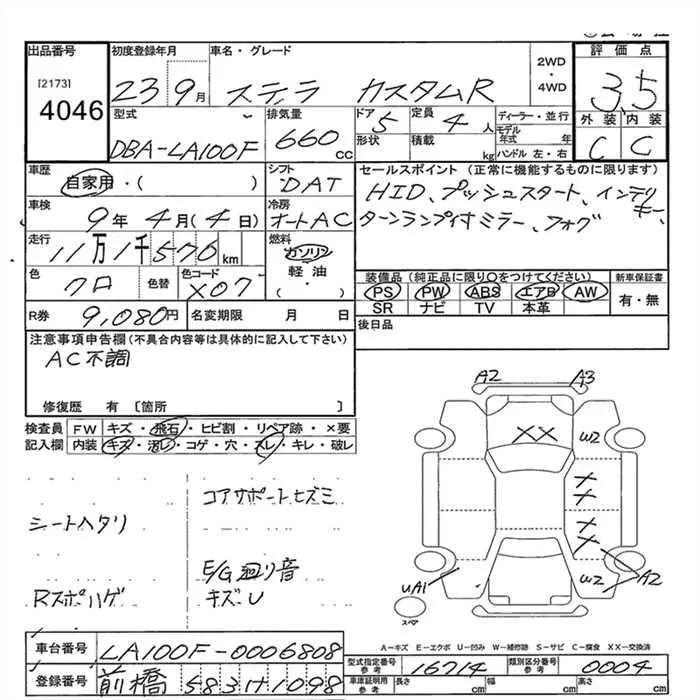 出品番号 初度登録年月 車名・グレード 2WD・4WD 評価点
[2173]
4046 23 9月 ステラ カスタムR 3.5
型式 排気量 ドア 定員 ディーラー・並行 外装 内装
DBA-LA100F 660cc 5 4人 C C
形状 積載 kg モデル年式 年 ハンドル 左・右
車歴 シフト セールスポイント(正常に機能するものに限ります)
自家用・( ) DAT HID、プッシュスタート、インテリキー、
車検 冷房 ターンランプ付ミラー、フォグ
9年4月(4日) オートAC
走行 燃料
11万1千576km ガソリン
軽油
・( )
色 色替 色コード 装備品(純正品に限り○をつけてください) 新車保証書
クロ X07 PS PW ABS エアB AW 有・無
SR ナビ TV 本革
R券 9,080円 名変期限 月 日 後日品
注意事項申告欄(不具合内容等は具体的に記入して下さい)
AC不調
修復歴 有〔箇所 〕
検査員 FW キズ・飛石・ヒビ割・リペア跡・×要
記入欄 内装 キズ・汚レ・コゲ・穴・スレ・キレ・破レ
A2 A3
XX W2
X
X
X
X
UA1 W2 A2
スペア
コアサポートヒズミ
シートヘタリ
E/G廻り音
Rスポハゲ キズU
A-キズ E-エクボ U-凹み W-補修跡 S-サビ C-腐食 XX-交換済
車台番号 LA100F-0006808
登録番号 前橋 583 1098
型式指定番号 参考 16714 類別区分番号 参考 0004
車庫証明用 参考 長さ cm 幅 cm 高さ cm